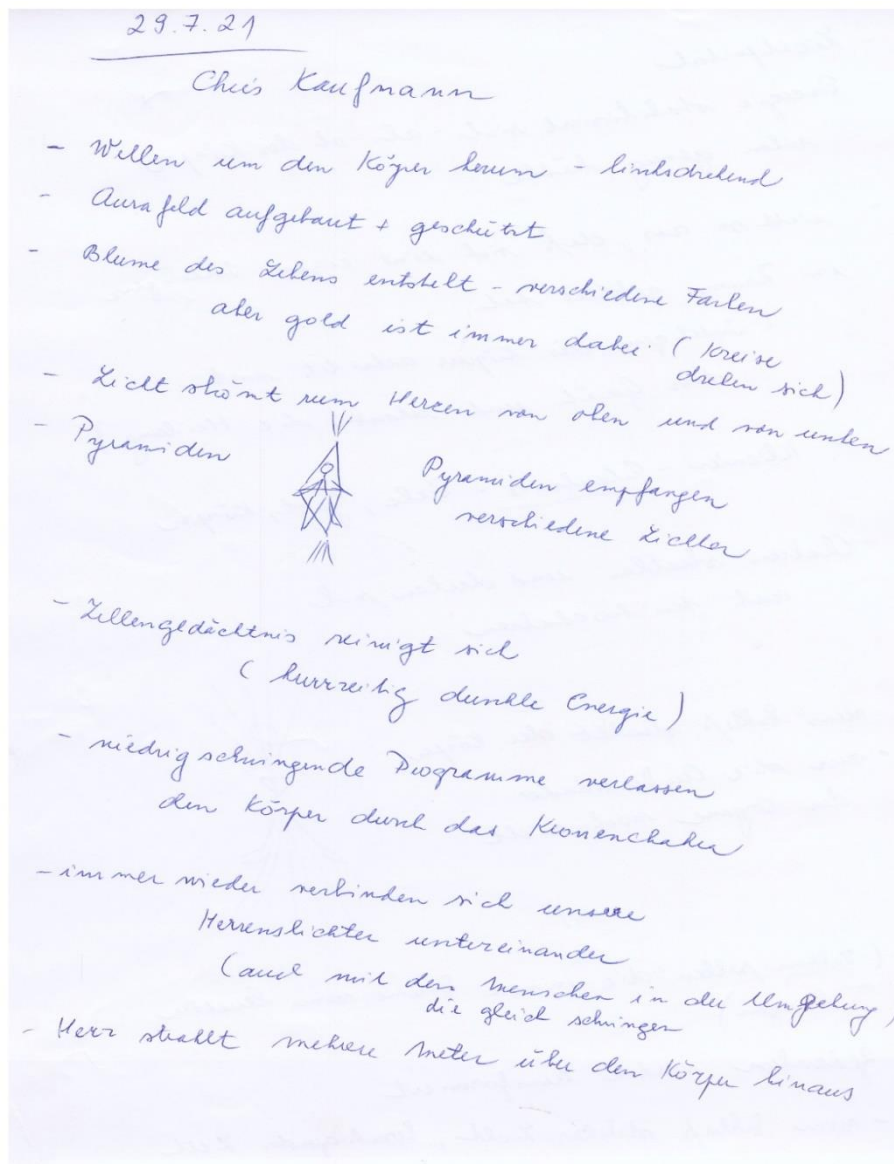 29.7.21
Chris Kaufmann
- Wellen um den Körper herum - linksdrehend
- Aurafeld aufgebaut + geschützt
- Blume des Lebens entsteht - verschiedene Farben
aber gold ist immer dabei (Kreise
drehen sich)
- Licht strömt zum Herzen von oben und von unten
- Pyramiden
Pyramiden empfangen
verschiedene Lichter
- Zellengedächtnis reinigt sich
(kurzzeitig dunkle Energie)
- niedrig schwingende Programme verlassen
den Körper durch das Kronenchakra
- immer wieder verbinden sich unsere
Herzenslichter untereinander
(auch mit den Menschen in der Umgebung,
die gleich schwingen
- Herz strahlt mehrere Meter über den Körper hinaus